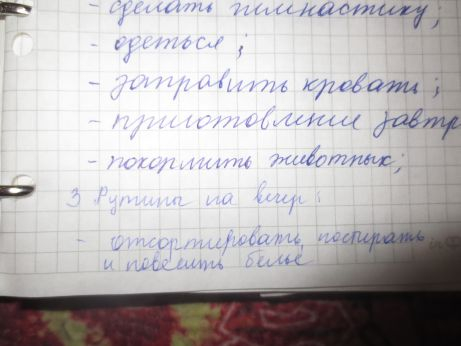 - сделать гимнастику;
- одеться;
- заправить кровать;
- приготовление завтр
- покормить животных;
3 Рутины на вечер:
- отсортировать, постирать
и повесить белье